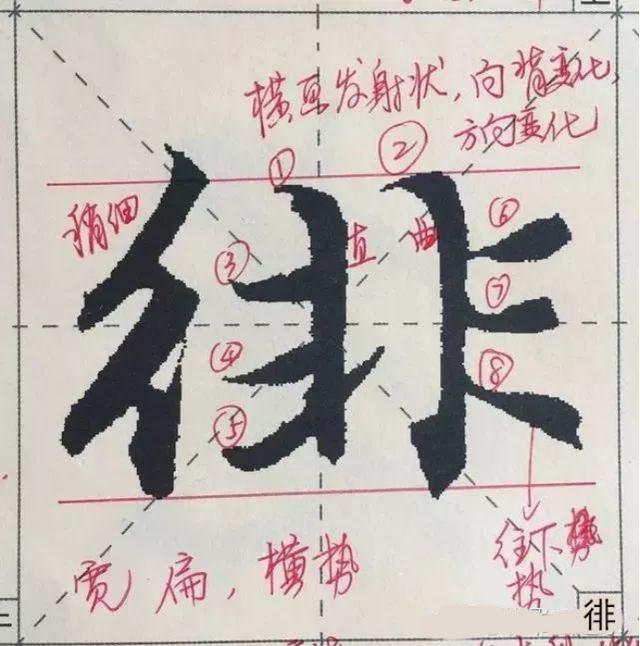 横画发射状,向背变化,
方向变化
① ②
稍细
徘
直 曲
③ ④ ⑤
⑥ ⑦ ⑧
宽扁,横势
往下
势
徘